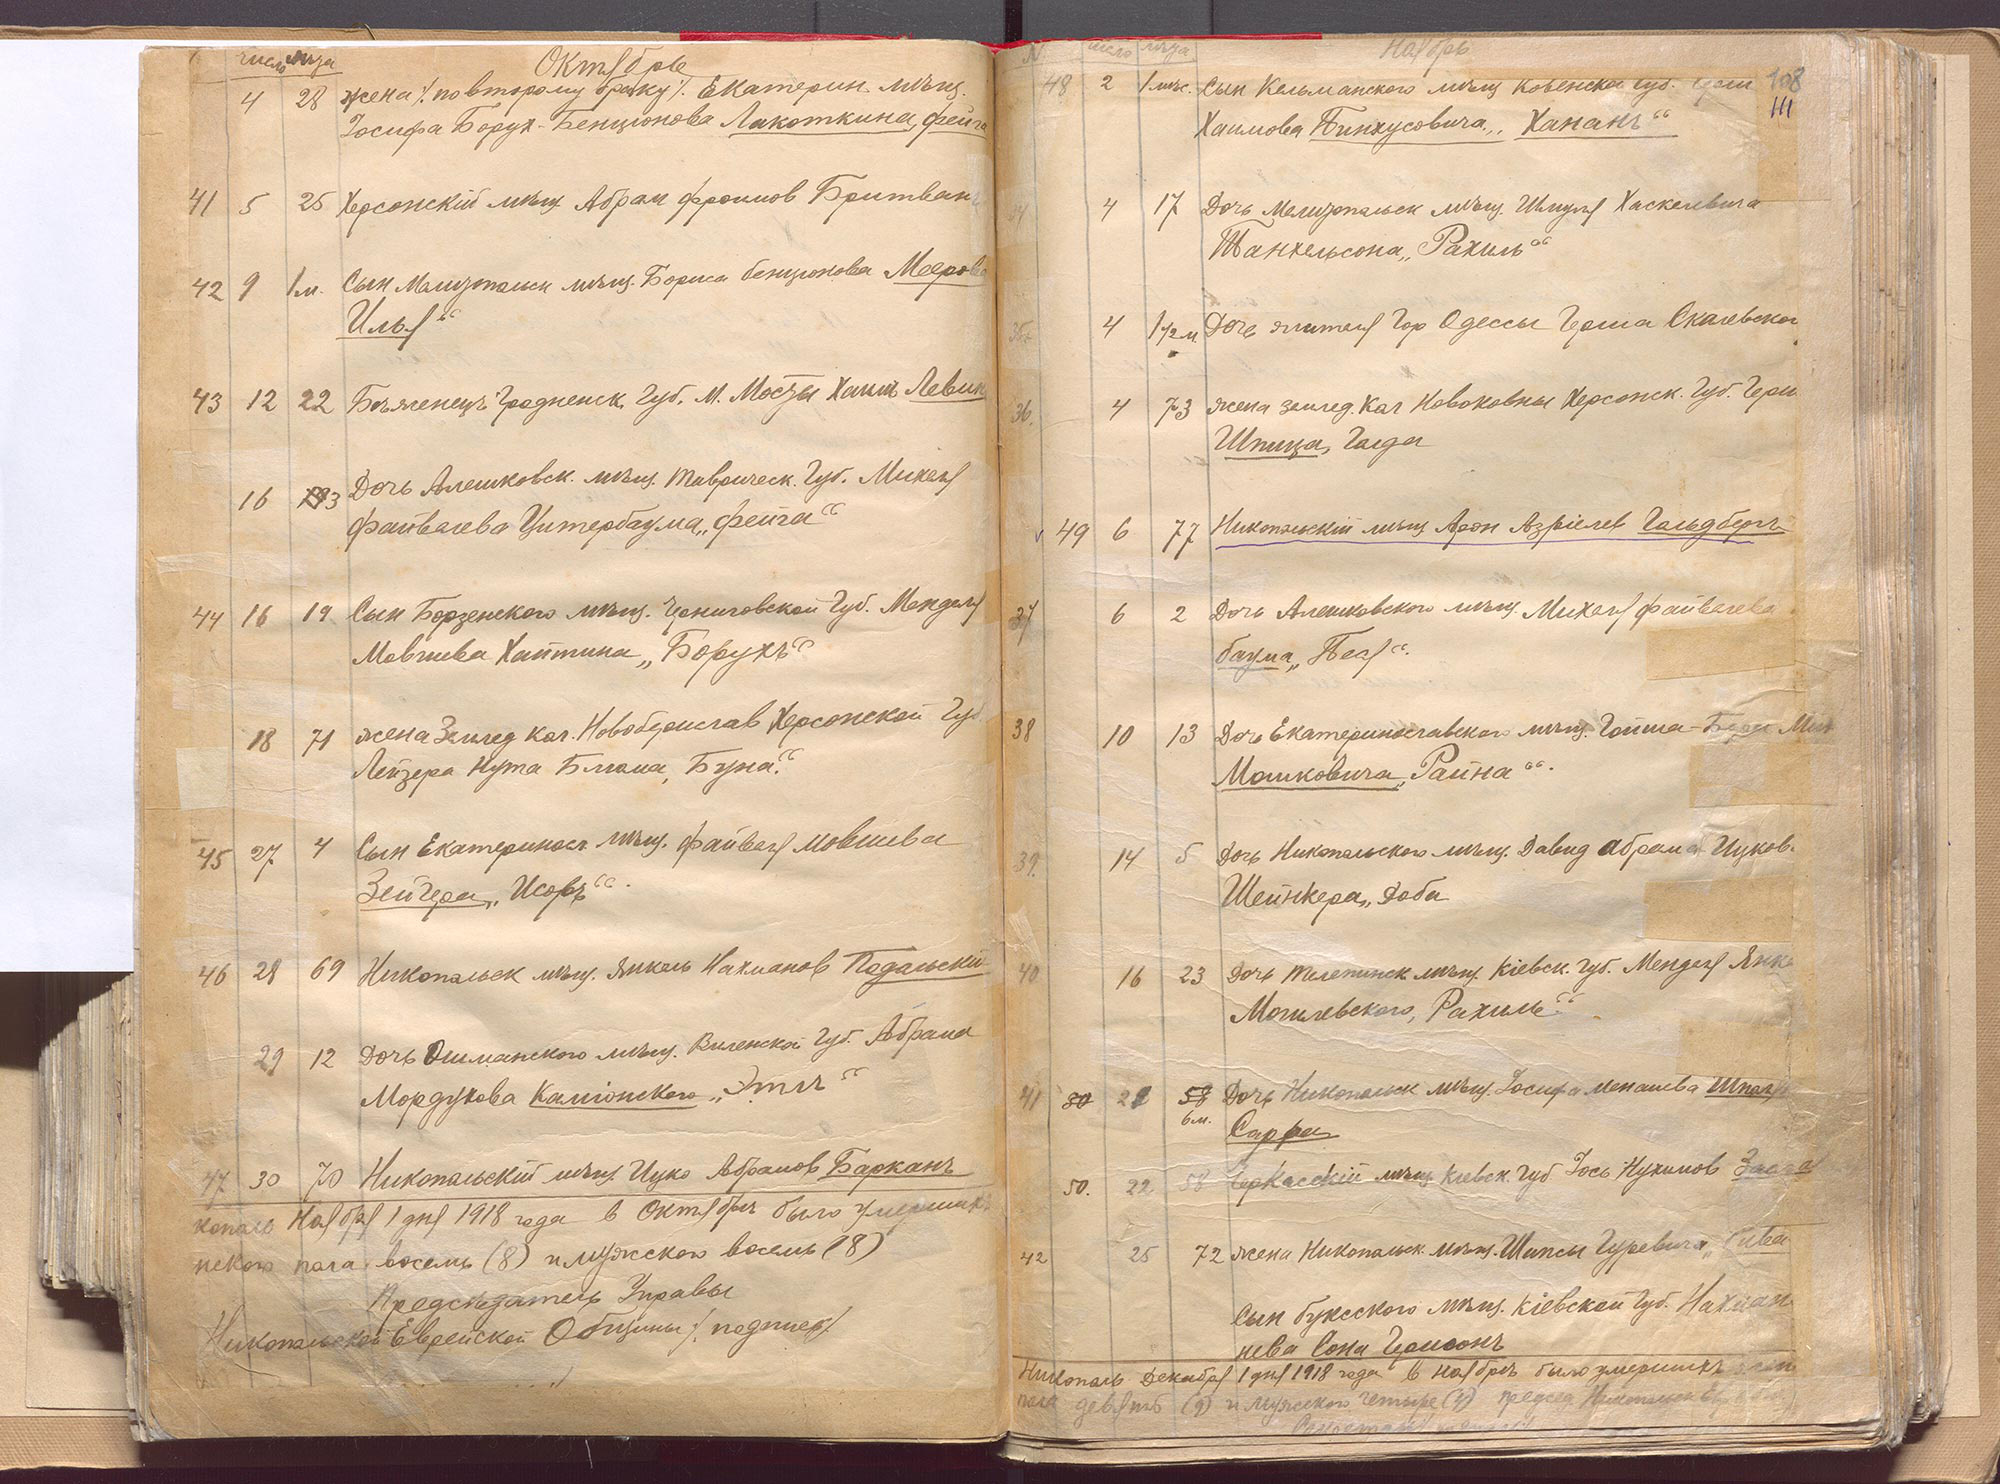 число лѣта
Октябрь
4 28 жена /по второму браку/ Екатерин. мѣщ.
Іосифа Борух-Бенціонова Лакоткина, Фейга
41 5 25 Херсонскій мѣщ. Абрам Фроимов Бритван
42 9 1 м. Сын Мелитопальск мѣщ. Бориса Бенціонова Меерова
Илья“
43 12 22 Бѣженецъ Гродненск. Губ. М. Мосты Хаимъ Левин
16 13 Дочь Алешковск. мѣщ. Таврическ. Губ. Михеля
Файвелева Цитербаума „Фейга“
44 16 19 Сын Борзенского мѣщ. Черниговской Губ. Менделя
Мовшева Хайтина „Борухъ“
18 71 жена Землед кол. Новоберислав Херсонской Губ
Лейзера Нута Блюма, Буна“
45 27 4 Сын Екатериносл мѣщ. Файвеля Мовшева
Зейгера „Исоръ“.
46 28 69 Никопальск мѣщ. Янкель Нахманов Подальскій
29 12 Дочь Ошманского мѣщ. Виленской Губ. Абрама
Мордухова Каміонского „Этль“
47 30 70 Никопальскій мѣщ. Ицко Абрамов Барканъ
кополь Ноября 1 дня 1918 года в Октябрѣ было умерших
нского пола восемь (8) и мужского восемь (8)
Предсѣдатель Управы
Никопальской Еврейской Общины /. подписал /.
N число лѣта
Ноябрь
108
111
48 2 1 мѣс. Сын Кельманского мѣщ Ковенской губ. Герш
Хаимова Пинхусовича „Хананъ“
34 4 17 Дочь Мелитопальск мѣщ. Шмуля Хаскелевича
Танхельсона „Рахиль“
35 4 1 1/2 м. Дочь жителя гор Одессы Герша Скалевског
36. 4 73 жена землед. Кол Новоковны Херсонск. Губ. Герш
Шпица, Голда
49 6 77 Никопальскій мѣщ Арон Азріелев Гольдбергъ
37 6 2 Дочь Алешковского мѣщ. Михеля Файвелева
баума „Песя“.
38 10 13 Дочь Екатеринославского мѣщ. Гойша-Бер
Мошковича „Райна“.
39. 14 5 Дочь Никопальского мѣщ. Давид Абрама Ицков.
Шейнкера „Доба
40 16 23 Дочь Телепинск мѣщ. Кіевск. Губ. Менделя Янке
Могилевского, Рахиль“
41 6 м. Дочь Никопальск мѣщ. Іосифа Менашева
Сарра
50. 22 58 Черкасскій мѣщ Кіевск. Губ Іось Нухимов
42 25 72 жена Никопальск. мѣщ. Шипсы Гуревича „
Сын мѣщ. Кіевской Губ. Нахман
нева Сона Гершонъ
Никополь Декабря 1 дня 1918 года в Ноябрѣ было умерших
пола девять (9) и мужского четыре (4)